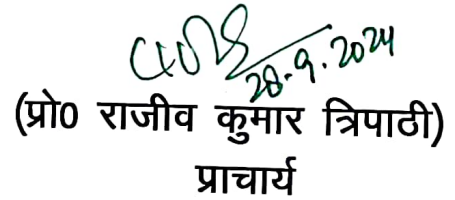 28.9.2024
(प्रो0 राजीव कुमार त्रिपाठी)
प्राचार्य